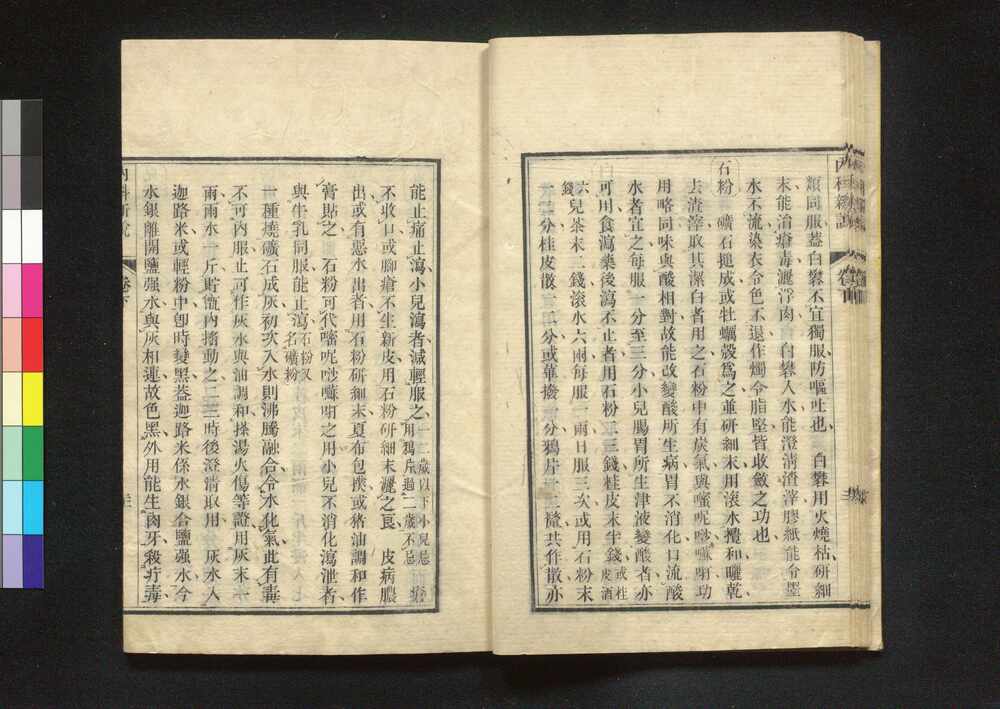 類同服蓋白礬不宜獨服防嘔吐也 白礬用火燒枯研細
末能治瘡毒灑浮肉 白礬入水能澄清渣滓膠紙能令墨
水不流染衣令色不退作燭令脂堅皆收斂之功也
石粉 礦石搥成或牡蠣殼爲之並研細末用滾水攪和曬乾
去渣滓取其潔白者用之石粉中有炭氣與嗎呢唦嚬唨功
用略同味與酸相對故能改變酸所生病胃不消化口流酸
水者宜之每服一分至三分小兒腸胃所生津液變酸者亦
可用食瀉藥後瀉不止者用石粉三錢桂皮末半錢或桂皮酒
六錢兒茶末二錢滾水六兩每服一兩日服三次或用石粉末
二分桂皮散二分或蓽撥一分鴉片一釐共作散亦
能止痛止瀉小兒瀉者減輕服之一二歲以下小兒忌用鴉片過二歲不忌 瘡
不收口或腳瘡不生新皮用石粉研細末灑之良 皮病膿
出或有惡水出者用石粉研細末夏布包撲或豬油調和作
膏貼之 石粉可代嗎呢唦嚬唨之用小兒不消化瀉泄者
與牛乳同服能止瀉石粉又名礦粉
一種燒礦石成灰初次入水則沸騰融合令水化氣此有毒
不可內服止可作灰水與油調和搽湯火傷等證用灰末一
兩雨水一斤貯甑內搖動之二三時後澄清取用 灰水入
迦路米或輕粉中卽時變黑蓋迦路米係水銀合鹽强水今
水銀離開鹽强水與灰相連故色黑外用能生肉牙殺疔毒
內科新說
卷下